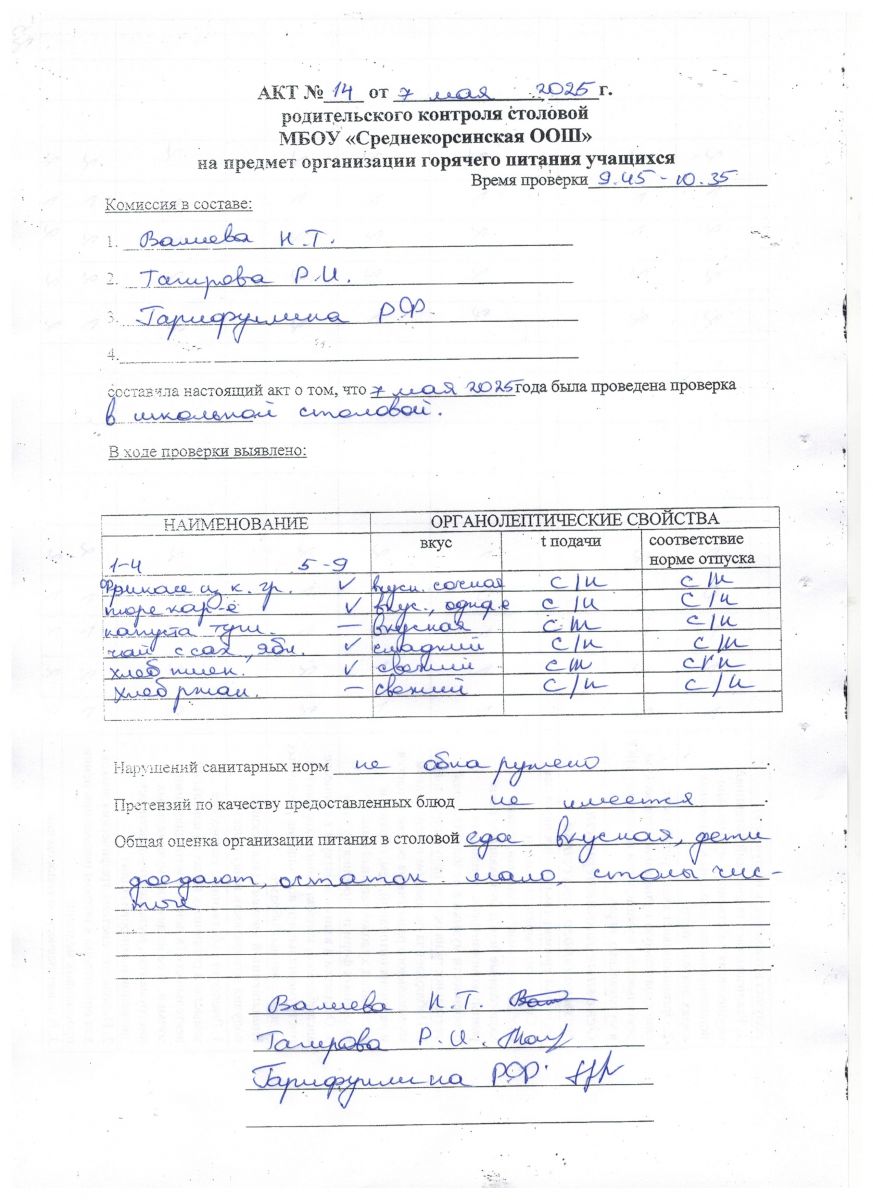 АКТ № 14 от 7 мая 2025 г.
родительского контроля столовой
МБОУ «Среднекорсинская ООШ»
на предмет организации горячего питания учащихся
Время проверки 9.45 - 10.35
Комиссия в составе:
1. Валиева Н.Т.
2. Тагирова Р.И.
3. Гарифуллина Р.Ф.
4.
составила настоящий акт о том, что 7 мая 2025 года была проведена проверка
в школьной столовой.
В ходе проверки выявлено:
НАИМЕНОВАНИЕ ОРГАНОЛЕПТИЧЕСКИЕ СВОЙСТВА
вкус t подачи соответствие
норме отпуска
1-4 5-9
фрикасе из к. гр. ✓ вкусн. сочная с/н с/н
пюре кар-е ✓ вкус., с/н с/н
капуста туш. — вкусная с/н с/н
чай с сах, ябл. ✓ сладкий с/н с/н
хлеб пшен. ✓ свежий с/н с/н
хлеб ржан. — свежий с/н с/н
Нарушений санитарных норм не обнаружено.
Претензий по качеству предоставленных блюд не имеется.
Общая оценка организации питания в столовой еда вкусная, дети
доедают, остаток мало, столы чис-
тые
Валиева Н.Т.
Тагирова Р.И.
Гарифуллина Р.Ф.